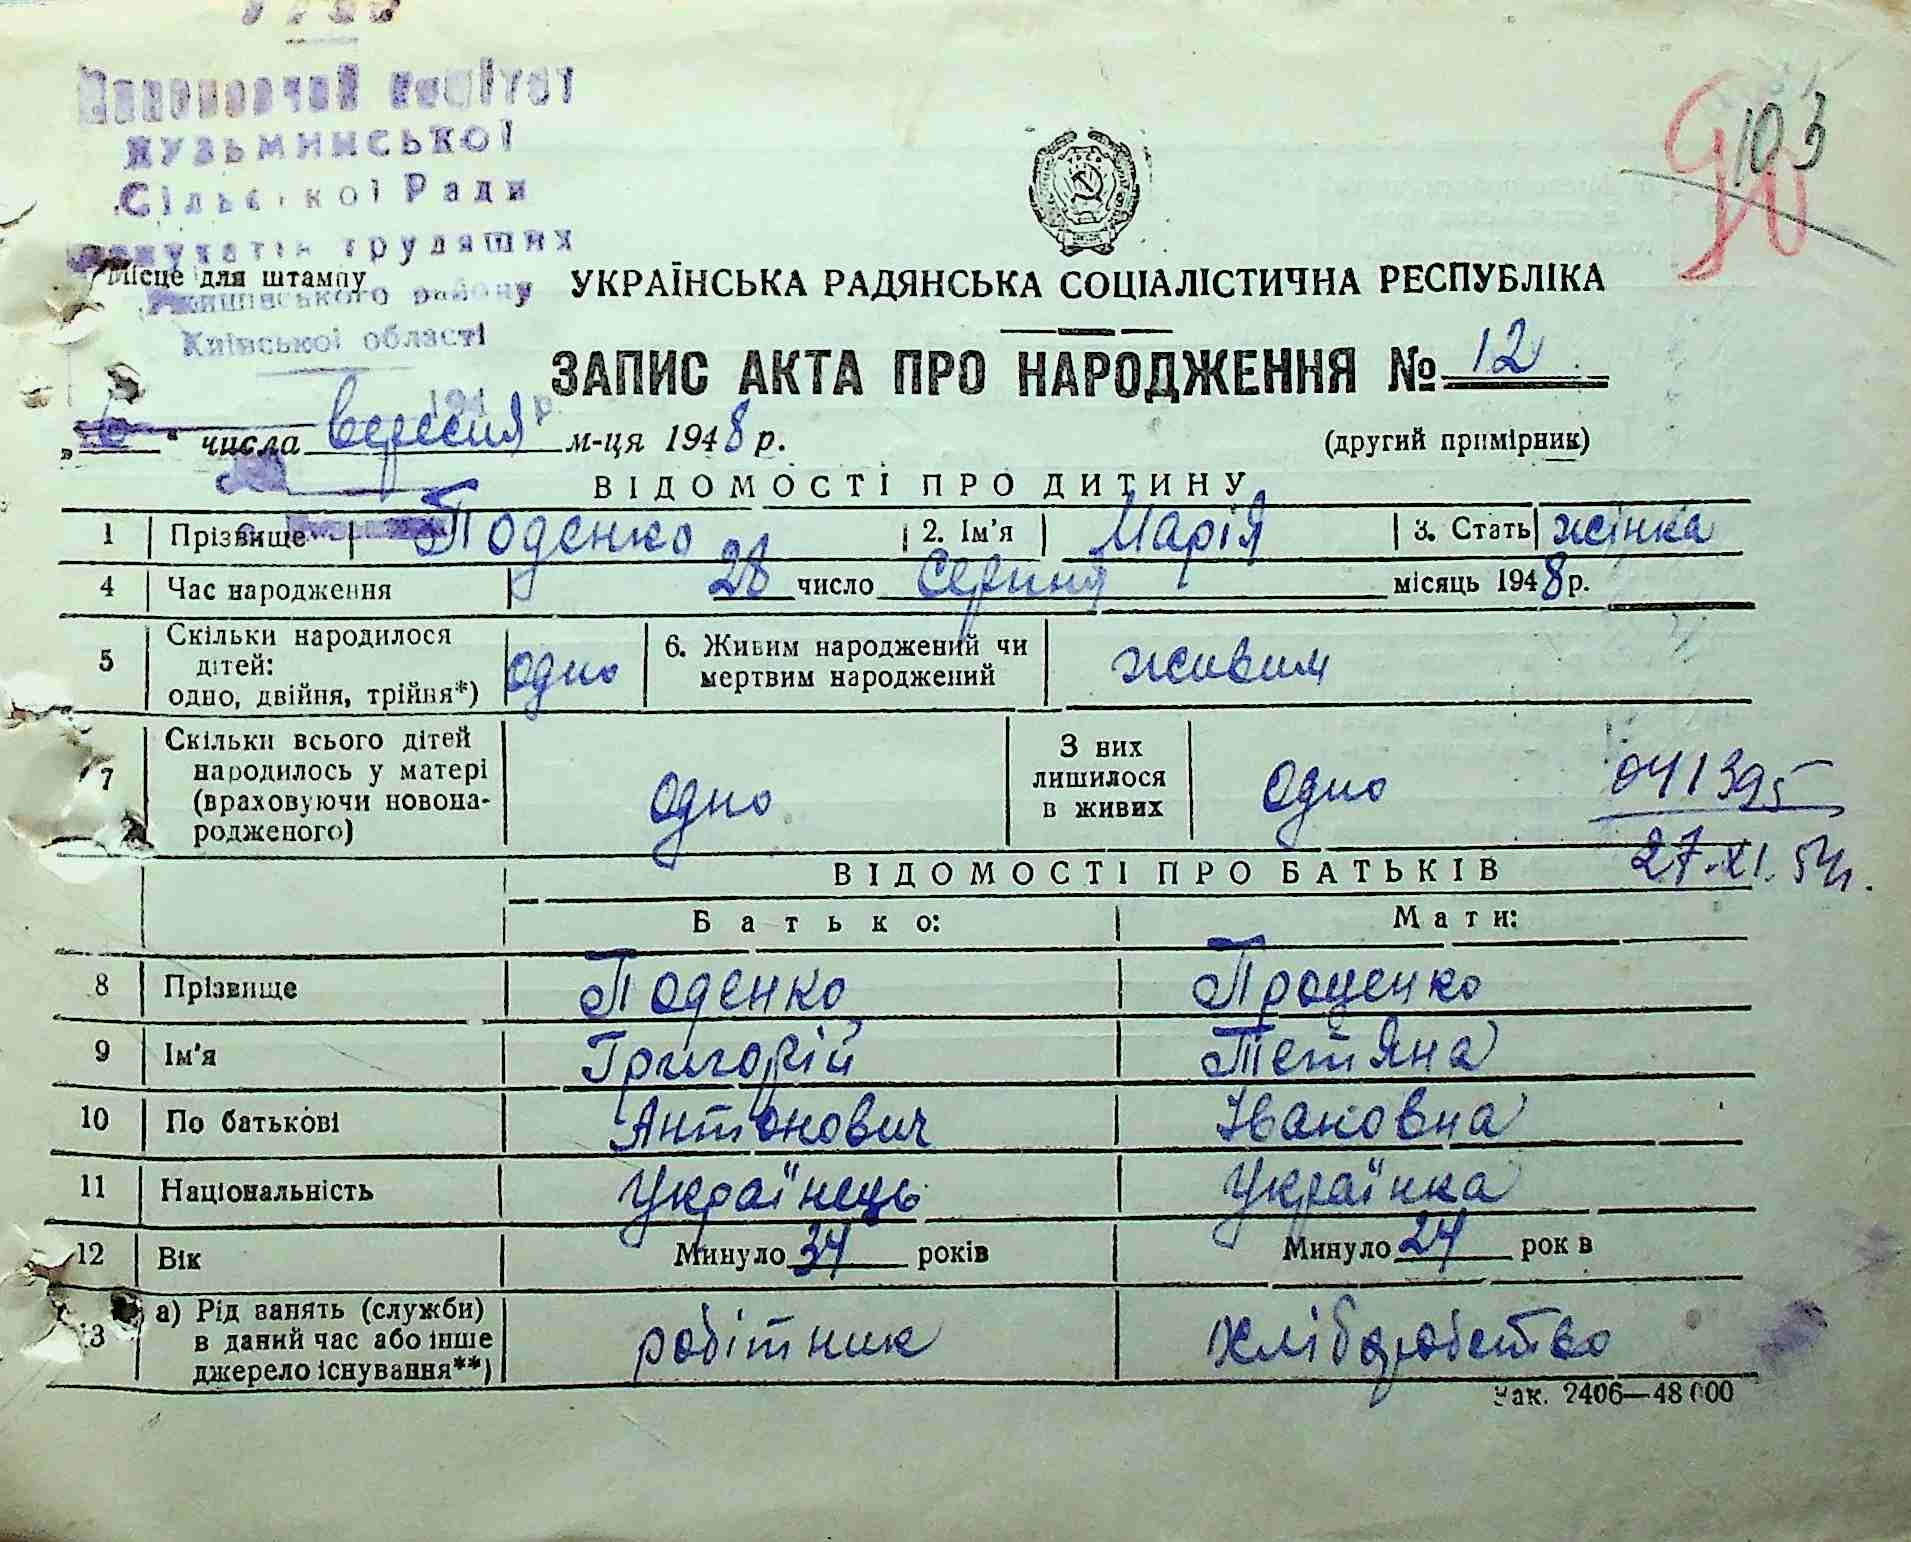 Виконавчий комітет
Кузьминської
Сільської Ради
депутатів трудящих
Кагарлицького району
Київської області
103
90
Місце для штампу
УКРАЇНСЬКА РАДЯНСЬКА СОЦІАЛІСТИЧНА РЕСПУБЛІКА
ЗАПИС АКТА ПРО НАРОДЖЕННЯ № 12
„6“ числа вересня м-ця 1948 р.
(другий примірник)
ВІДОМОСТІ ПРО ДИТИНУ
1 Прізвище Поденко 2. Ім'я Марія 3. Стать жінка
4 Час народження 28 число Серпня місяць 1948 р.
5 Скільки народилося дітей: одно, двійня, трійня*) одно 6. Живим народжений чи мертвим народжений живим
7 Скільки всього дітей народилось у матері (враховуючи новонародженого) одно З них лишилося в живих одно
041395
27.XI.54р.
ВІДОМОСТІ ПРО БАТЬКІВ
Батько: Мати:
8 Прізвище Поденко Проценко
9 Ім'я Григорій Тетяна
10 По батькові Антонович Івановна
11 Національність Українець Українка
12 Вік Минуло 34 років Минуло 24 рок в
13 а) Рід занять (служби) в даний час або інше джерело існування**) робітник хліборобство
Зак. 2406—48 000